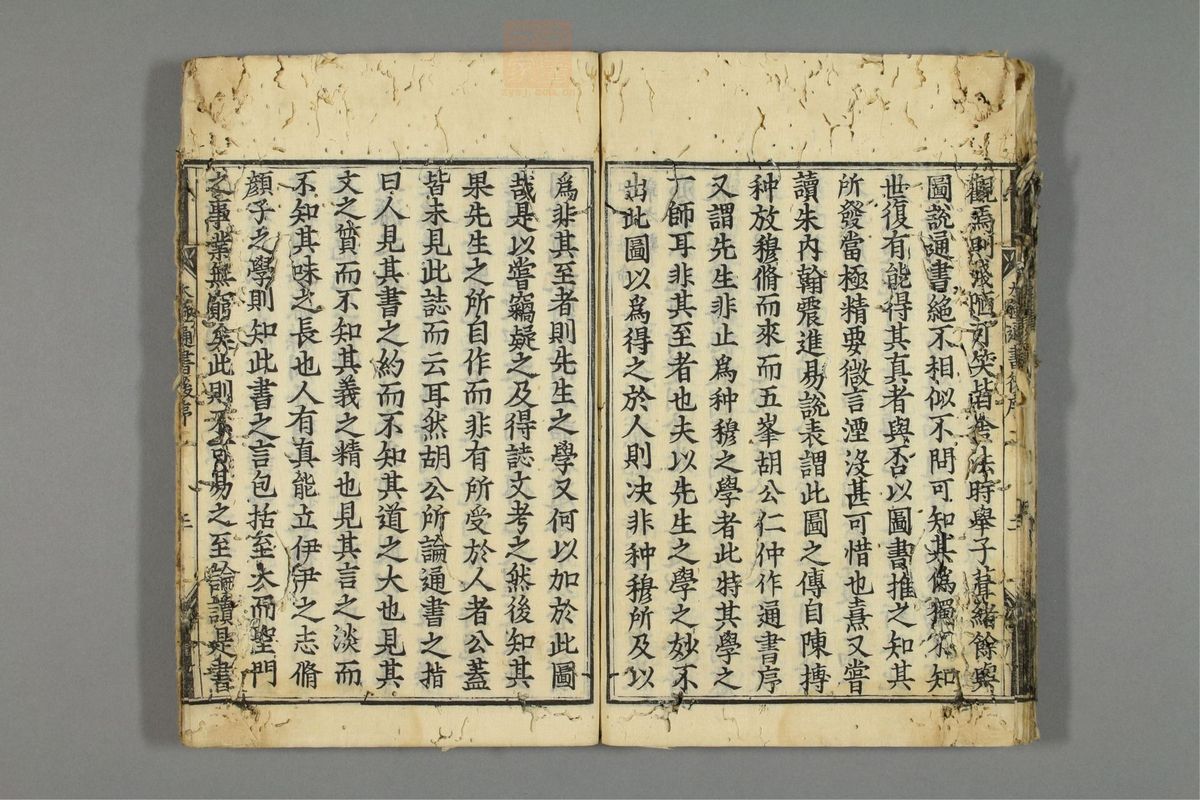 觀焉則淺陋可笑皆舍法時舉子葺緒餘與
圖說通書絕不相似不問可知其僞獨不知
世復有能得其真者與否以圖書推之知其
所發當極精要微言湮沒甚可惜也熹又嘗
讀朱內翰震進易說表謂此圖之傳自陳摶
种放穆脩而來而五峯胡公仁仲作通書序
又謂先生非止爲种穆之學者此特其學之
一師耳非其至者也夫以先生之學之妙不
出此圖以爲得之於人則决非种穆所及以
爲非其至者則先生之學又何以加於此圖
哉是以嘗竊疑之及得誌文考之然後知其
果先生之所自作而非有所受於人者公蓋
皆未見此誌而云耳然胡公所論通書之指
曰人見其書之約而不知其道之大也見其
文之質而不知其義之精也見其言之淡而
不知其味之長也人有真能立伊伊之志脩
顏子之學則知此書之言包括至大而聖門
之事業無窮矣此則不可易之至論讀是書
太極通書後序
三